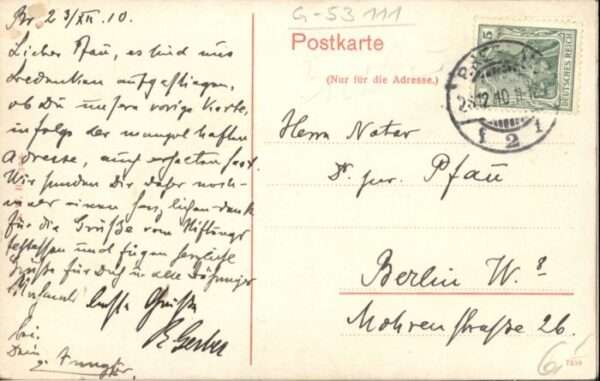 Br 23/XII. 10.
Lieber Pfau, es sind uns
Bedenken aufgestiegen,
ob Du unsere vorige Karte,
infolge der mangelhaften
Adresse, auch erhalten hast.
Wir senden Dir daher noch-
einen herzlichen Dank
für die Grüße vom Stiftungs
und fügen herzliche
Grüße für Dich u. alle
beste Grüße
R. Gerber
Dein
G-53 111
Postkarte
(Nur für die Adresse.)
5
DEUTSCHES REICH
12.10
f 2 i
Herrn Notar
Dr. jur. Pfau
Berlin W. 8
Mohrenstraße 26.
6